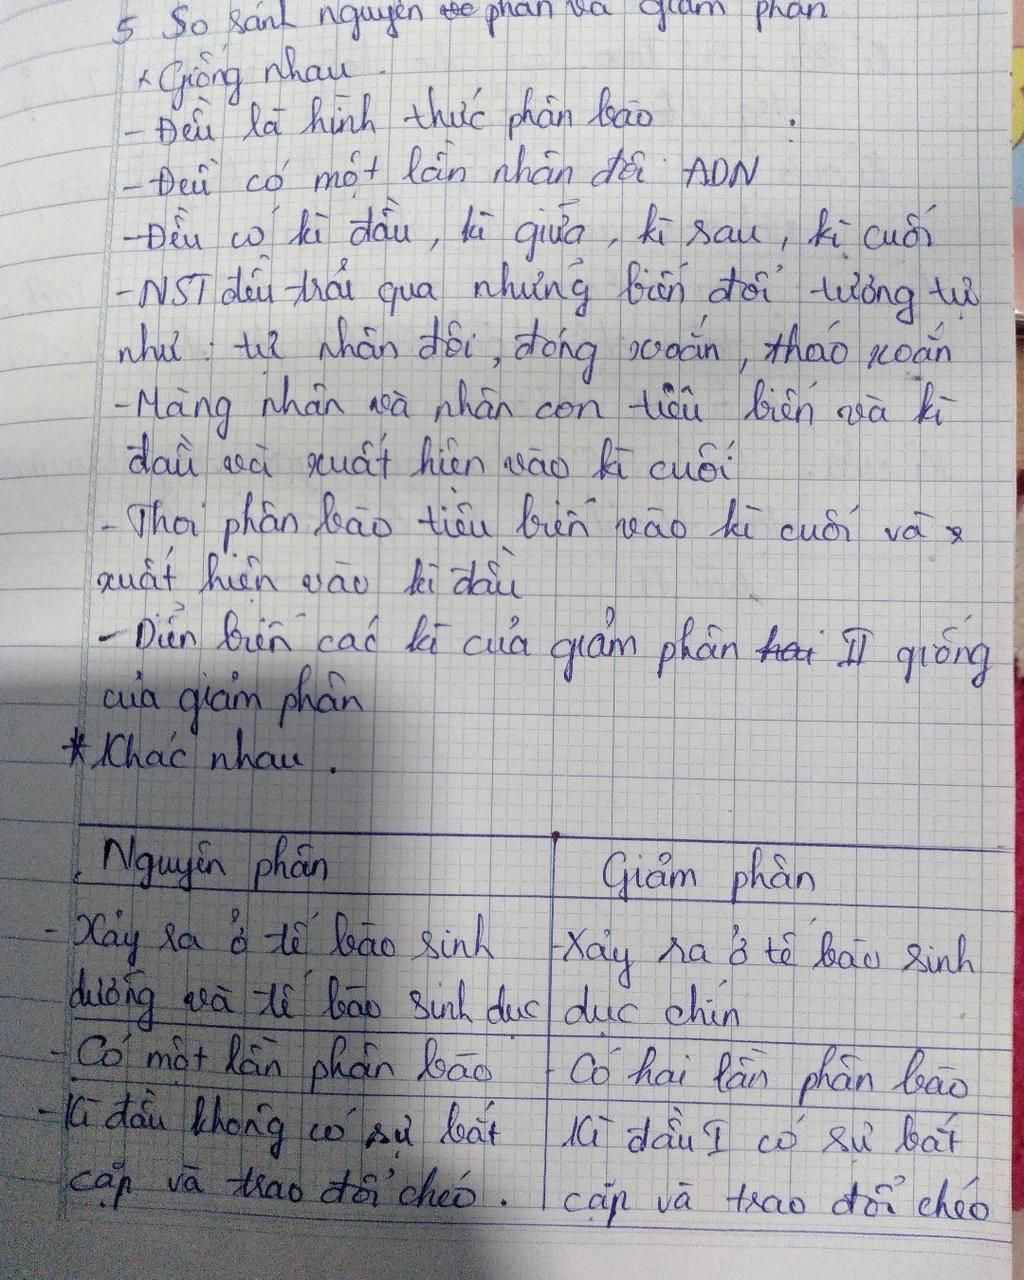 5 So sánh nguyên phân và giảm phân
* Giống nhau.
- Đều là hình thức phân bào
- Đều có một lần nhân đôi ADN
- Đều có kì đầu, kì giữa, kì sau, kì cuối
- NST đều trải qua những biến đổi tương tự
như: tự nhân đôi, đóng xoắn, tháo xoắn
- Màng nhân và nhân con tiêu biến và kì
đầu và xuất hiện vào kì cuối
- Thoi phân bào tiêu biến vào kì cuối và
xuất hiện vào kì đầu
- Diễn biến các kì của giảm phân II giống
của giảm phân
* Khác nhau.
Nguyên phân
Giảm phân
- Xảy ra ở tế bào sinh
dưỡng và tế bào sinh dục
- Xảy ra ở tế bào sinh
dục chín
- Có một lần phân bào
- Có hai lần phân bào
- Kì đầu không có sự bắt
cặp và trao đổi chéo.
Kì đầu I có sự bắt
cặp và trao đổi chéo